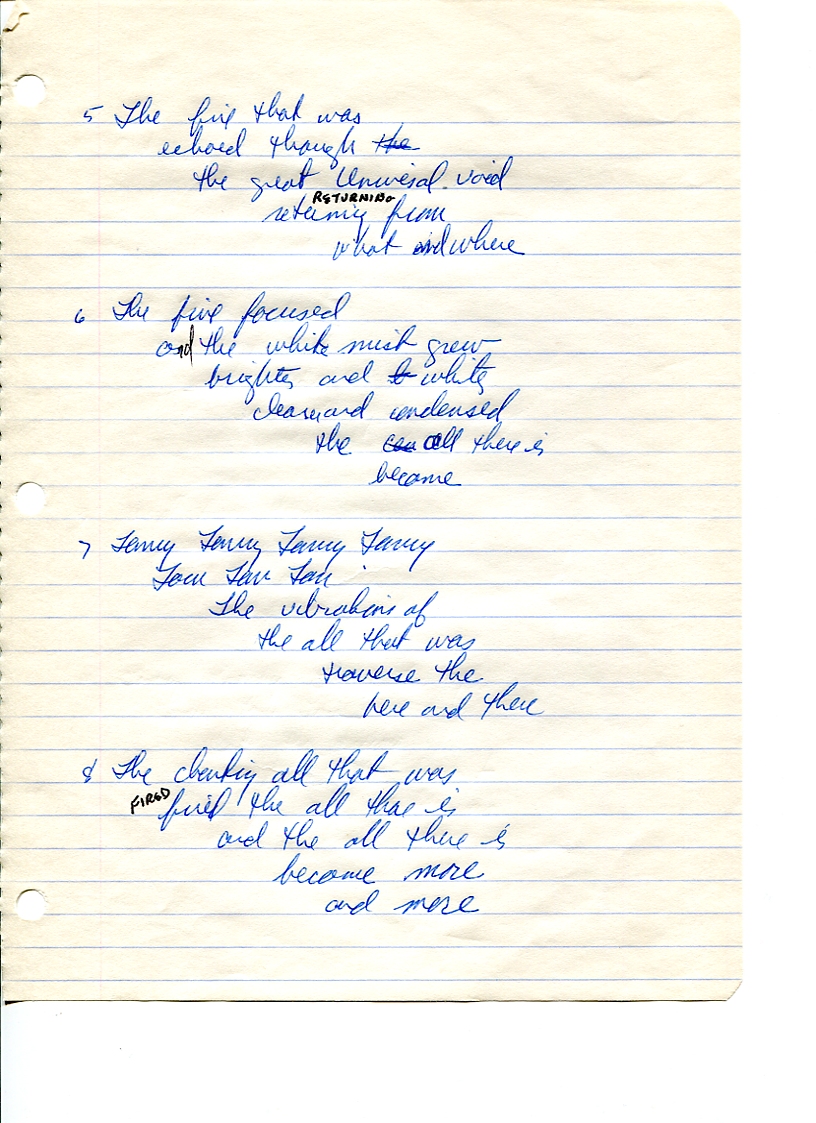 5 The fire that was
echoed though the
the great Universal void
RETURNING
returning from
what and where
6 The fire focused
and the white mist grew
brighter and white
clear and condensed
the all there is
become
7
The vibrations of
the all that was
traverse the
here and there
8 The all that was
FIRED
fired the all that is
and the all there is
become more
and more